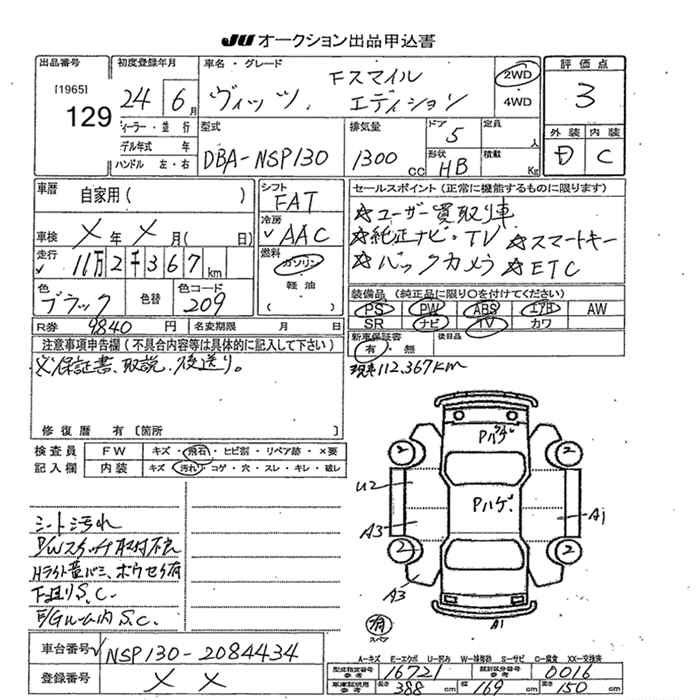 JU オークション出品申込書
出品番号
[1965]
129
初度登録年月
24 6月
車名・グレード
ヴィッツ. Fスマイル エディション
2WD
4WD
評価点
3
外装 内装
D C
ディーラー・並行
モデル年式 年
ハンドル 左・右
型式
DBA-NSP130
排気量
1300 CC
ドア
5
形状
HB
定員
人
積載
Kg
車歴
自家用( )
車検
メ年 メ月( 日)
走行
11万2千367km
色
ブラック
色替
色コード
209
R券 9840 円 名変期限 月 日
シフト
FAT
冷房
AAC
燃料
ガソリン
軽油
( )
セールスポイント(正常に機能するものに限ります)
☆ユーザー買取り車
☆純正ナビ・TV ☆スマートキー
☆バックカメラ ☆ETC
装備品 (純正品に限り〇を付けてください)
PS PW ABS エアB AW
SR ナビ TV カワ
新車保証書
有・無
後日品
現車112,367km
注意事項申告欄(不具合内容等は具体的に記入して下さい)
※保証書、取説、後送り。
修復歴 有〔箇所 〕
検査員
記入欄
FW キズ・飛石・ヒビ割・リペア跡・×要
内装 キズ・汚れ・コゲ・穴・スレ・キレ・破レ
シート汚れ
P/Wスイッチ取付不良
Hライト黄バミ、ホウセキ有
下廻りS.C.
E/Gルーム内S.C.
Pハゲ
Pハゲ.
2
2
2
2
U2
A3
A3
A1
A1
有
スペア
車台番号
NSP130-2084434
登録番号
メ メ
A-キズ E-エクボ U-凹み W-補修跡 S-サビ C-腐食 XX-交換済
型式指定番号 参考 16721 類別区分番号 参考 0016
車庫証明用 参考 長さ 388 cm 幅 169 cm 高さ 150 cm